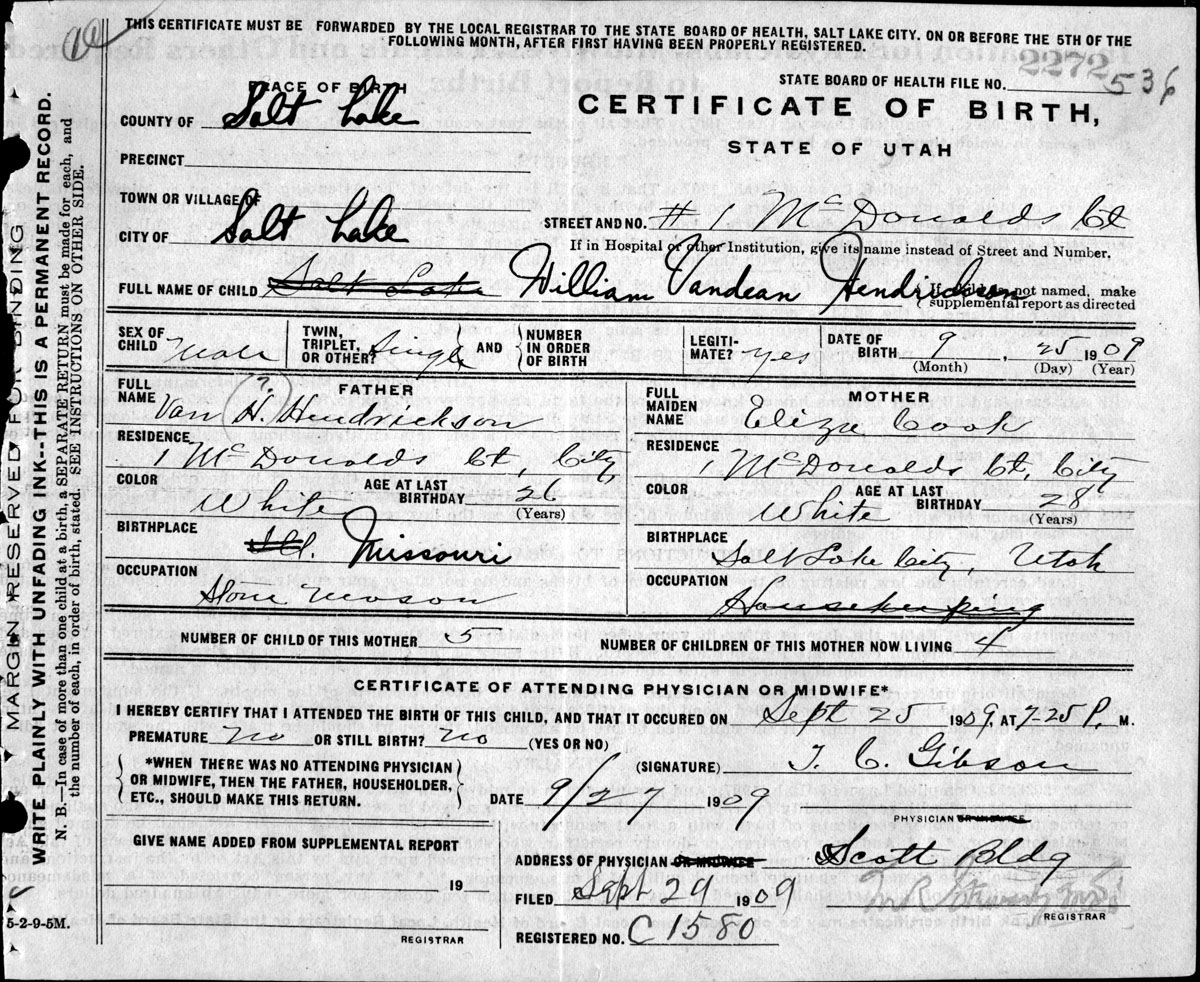 THIS CERTIFICATE MUST BE FORWARDED BY THE LOCAL REGISTRAR TO THE STATE BOARD OF HEALTH, SALT LAKE CITY. ON OR BEFORE THE 5TH OF THE
FOLLOWING MONTH, AFTER FIRST HAVING BEEN PROPERLY REGISTERED.
STATE BOARD OF HEALTH FILE NO. 2272 536
PLACE OF BIRTH
CERTIFICATE OF BIRTH,
COUNTY OF Salt Lake
STATE OF UTAH
PRECINCT
TOWN OR VILLAGE OF
CITY OF Salt Lake
STREET AND NO. #1 McDonalds Ct
If in Hospital or other Institution, give its name instead of Street and Number.
FULL NAME OF CHILD Salt Lake William Vandean Hendrickson
If child is not named, make
supplemental report as directed
SEX OF CHILD Male TWIN, TRIPLET, OR OTHER? Single AND NUMBER IN ORDER OF BIRTH LEGITI-MATE? yes DATE OF BIRTH 9, 25 1909
(Month) (Day) (Year)
FATHER
FULL NAME Van H. Hendrickson
RESIDENCE 1 McDonalds Ct, City
COLOR White AGE AT LAST BIRTHDAY 26
(Years)
BIRTHPLACE Missouri
OCCUPATION Stone Mason
MOTHER
FULL MAIDEN NAME Eliza Cook
RESIDENCE 1 McDonalds Ct, City
COLOR White AGE AT LAST BIRTHDAY 28
(Years)
BIRTHPLACE Salt Lake City, Utah
OCCUPATION Housekeeping
NUMBER OF CHILD OF THIS MOTHER 5 NUMBER OF CHILDREN OF THIS MOTHER NOW LIVING 4
CERTIFICATE OF ATTENDING PHYSICIAN OR MIDWIFE*
I HEREBY CERTIFY THAT I ATTENDED THE BIRTH OF THIS CHILD, AND THAT IT OCCURED ON Sept 25 1909. AT 7.25 P. M.
PREMATURE No OR STILL BIRTH? No (YES OR NO)
*WHEN THERE WAS NO ATTENDING PHYSICIAN
OR MIDWIFE, THEN THE FATHER, HOUSEHOLDER,
ETC., SHOULD MAKE THIS RETURN.
(SIGNATURE) T. C. Gibson
DATE 9/27 1909
PHYSICIAN OR MIDWIFE
GIVE NAME ADDED FROM SUPPLEMENTAL REPORT
19
REGISTRAR
ADDRESS OF PHYSICIAN OR MIDWIFE Scott Bldg
FILED Sept 29 1909
REGISTRAR
REGISTERED NO. C 1580
5-2-9-5M.
MARGIN RESERVED FOR BINDING
WRITE PLAINLY WITH UNFADING INK--THIS IS A PERMANENT RECORD.
N. B.—In case of more than one child at a birth, a SEPARATE RETURN must be made for each, and
the number of each, in order of birth, stated. SEE INSTRUCTIONS ON OTHER SIDE.